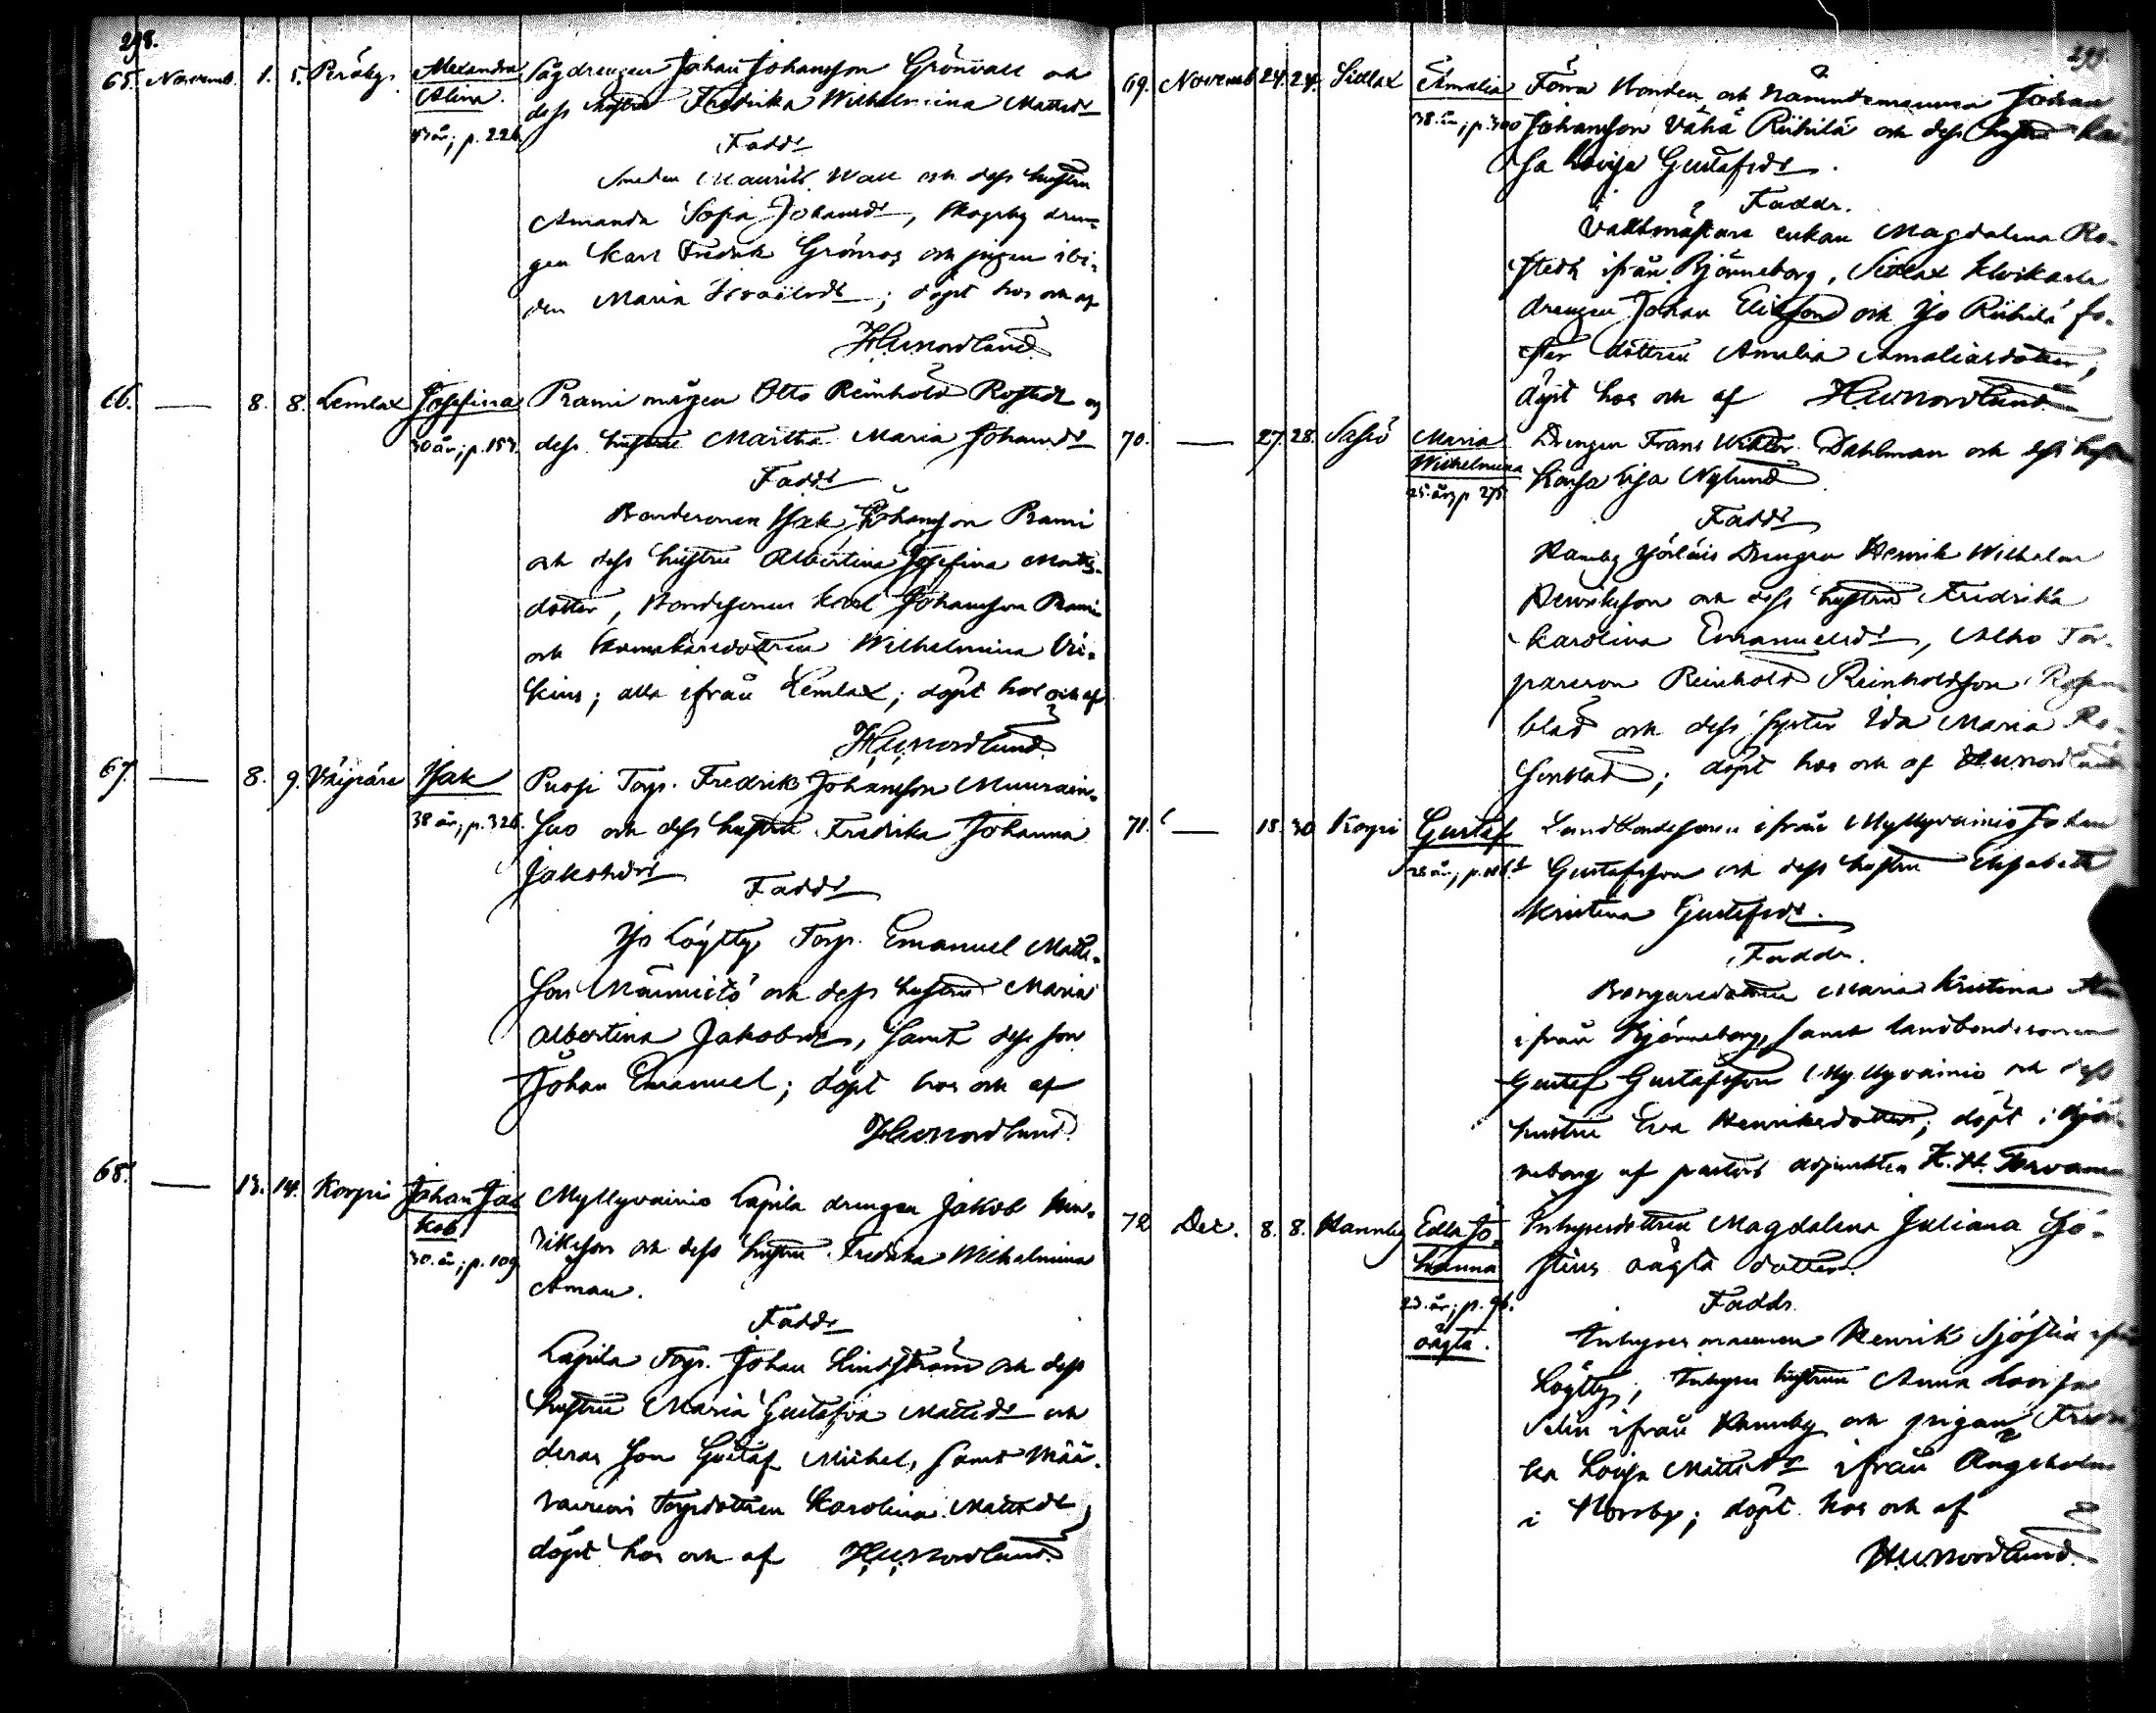 298.
65. Novemb. 1. 5. Peräby. Alexandra Alina. 43 år; p. 226.
Sågdrengen Johan Johansson Grönvall och
dess hustru Fredrika Wilhelmina Mattsdr
Faddr
Smeden Maurits Wall och dess hustru
Amanda Sofia Johansdr, Skogsby dren-
gen Karl Fredrik Grönroos och pigan ibi-
den Maria Israelsdr; döpt hos och af
H.U.Nordlund.
66. — 8. 8. Lemlax Josefina 30 år; p. 153.
Prami mågen Otto Reinhold Rostedt och
dess hustru Martha Maria Johansdr
Faddr
Bondesonen Isak Johansson Prami
och dess hustru Albertina Josefina Matts-
dotter, Bondesonen Karl Johansson Prami
och dottren Wilhelmina
; alla ifrån Lemlax; döpt hos och af
H.U.Nordlund
67. — 8. 9. Väipäre Isak 38 år; p. 326.
Puosi Torp. Fredrik Johansson Muurain-
suo och dess hustru Fredrika Johanna
Jakobsdr
Faddr
Yso Löytty Torp. Emanuel Matts-
son Männistö och dess hustru Maria
Albertina Jakobsdr, samt dess son
Johan Emanuel; döpt hos och af
H.U.Nordlund.
68. — 13. 14. Korpi Johan Jakob 30. år; p. 109
Myllyvainio Lapila drengen Jakob Hin-
riksson och dess hustru Fredrika Wilhelmina
Åman.
Faddr
Lapila Torp. Johan Lindström och dess
hustru Maria Gustafva Mattsdr och
deras son Gustaf Mickel, samt
Torpdottren Karolina Mattsdr
döpt hos och af H.U.Nordlund.
299.
69. Novemb. 24. 24. Sidlax Amalia 38. år; p. 300
Förra Bonden och Nämndemannen Johan
Johansson Vähä Riihilä och dess hustru Kai-
sa Lovisa Gustafsdr.
Faddr.
Vaktmästare enkan Magdalena Ro-
stedt ifrån Björneborg, Sidlax
drengen Johan Eliasson och Yso Riihilä fo-
ster dottren Amalia Amaliasdotter;
döpt hos och af H.U.Nordlund
70. — 27. 28. Sassiö Maria Wilhelmina 25. år; p. 275.
Drengen Frans Wiktor Dahlman och dess hustru
Kaisa Lisa Nylund
Faddr
Hannby Drengen Henrik Wilhelm
Henriksson och dess hustru Fredrika
Karolina Emanuelsdr, Alho Tor-
pareson Reinhold Reinholdsson Rosen-
blad och dess syster Ida Maria Ro-
senblad; döpt hos och af H.U.Nordlund
71. — 18. 30. Korpi Gustaf 28 år;
Landbondesonen ifrån Myllyvainio Johan
Gustafsson och dess hustru Elisabeth
Kristina Gustafsdr.
Faddr.
Borgaredottren Maria Kristina
ifrån Björneborg, samt landbondesonen
Gustaf Gustafsson Myllyvainio och dess
hustru Eva Henriksdotter; döpt i Björ-
neborg af pastors adjunkten
72. Dec. 8. 8. Hannby Edla Johanna 23. år; p. 96. oägta.
Inhyserdottren Magdalena Juliana Sjö-
stens oägta dotter.
Faddr.
Inhyses mannen Henrik Sjöstin ifrån
Löytty, Inhyses hustrun Anna Lovisa
Selin ifrån Hannby och pigan Fredri-
ka Lovisa Mattsdr ifrån Ängeholm
i Norrby; döpt hos och af
H.U.Nordlund.